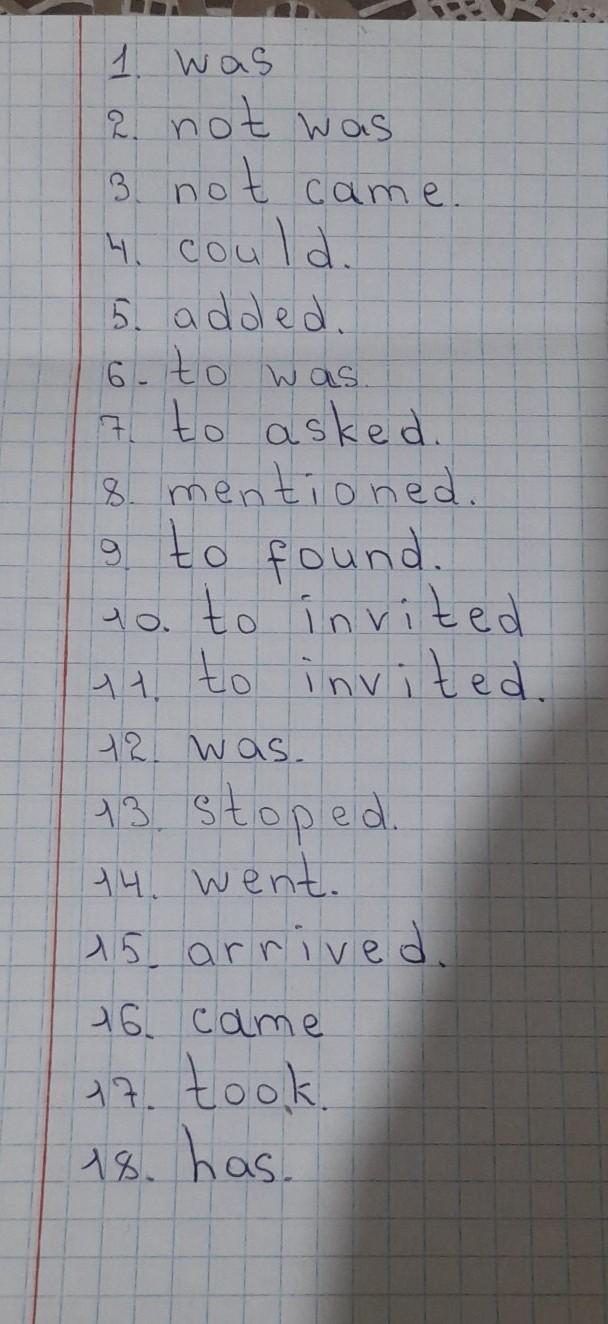 1. was
2. not was
3. not came.
4. could.
5. added.
6. to was.
7. to asked.
8. mentioned.
9. to found.
10. to invited
11. to invited.
12. was.
13. stoped.
14. went.
15. arrived.
16. came
17. took.
18. has.